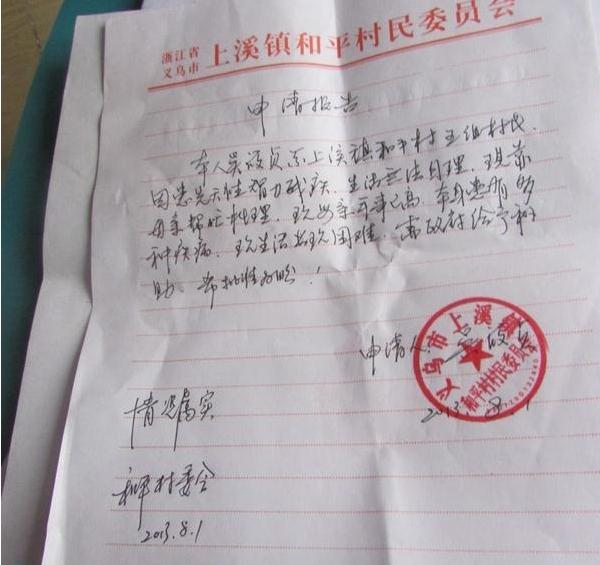 浙江省
义乌市 上溪镇和平村民委员会
申请报告
本人吴贞系上溪镇和平村五组村民.
因患先天性智力残疾.生活无法自理.现靠
母亲帮忙料理.现母亲年事已高.本身患有多
种疾病.现生活出现困难.需政府给予补
助.希批准为盼!
申请人:吴
义乌市上溪镇
和平村村民委员会
2013.8.1
情况属实
和平村委会
2013.8.1